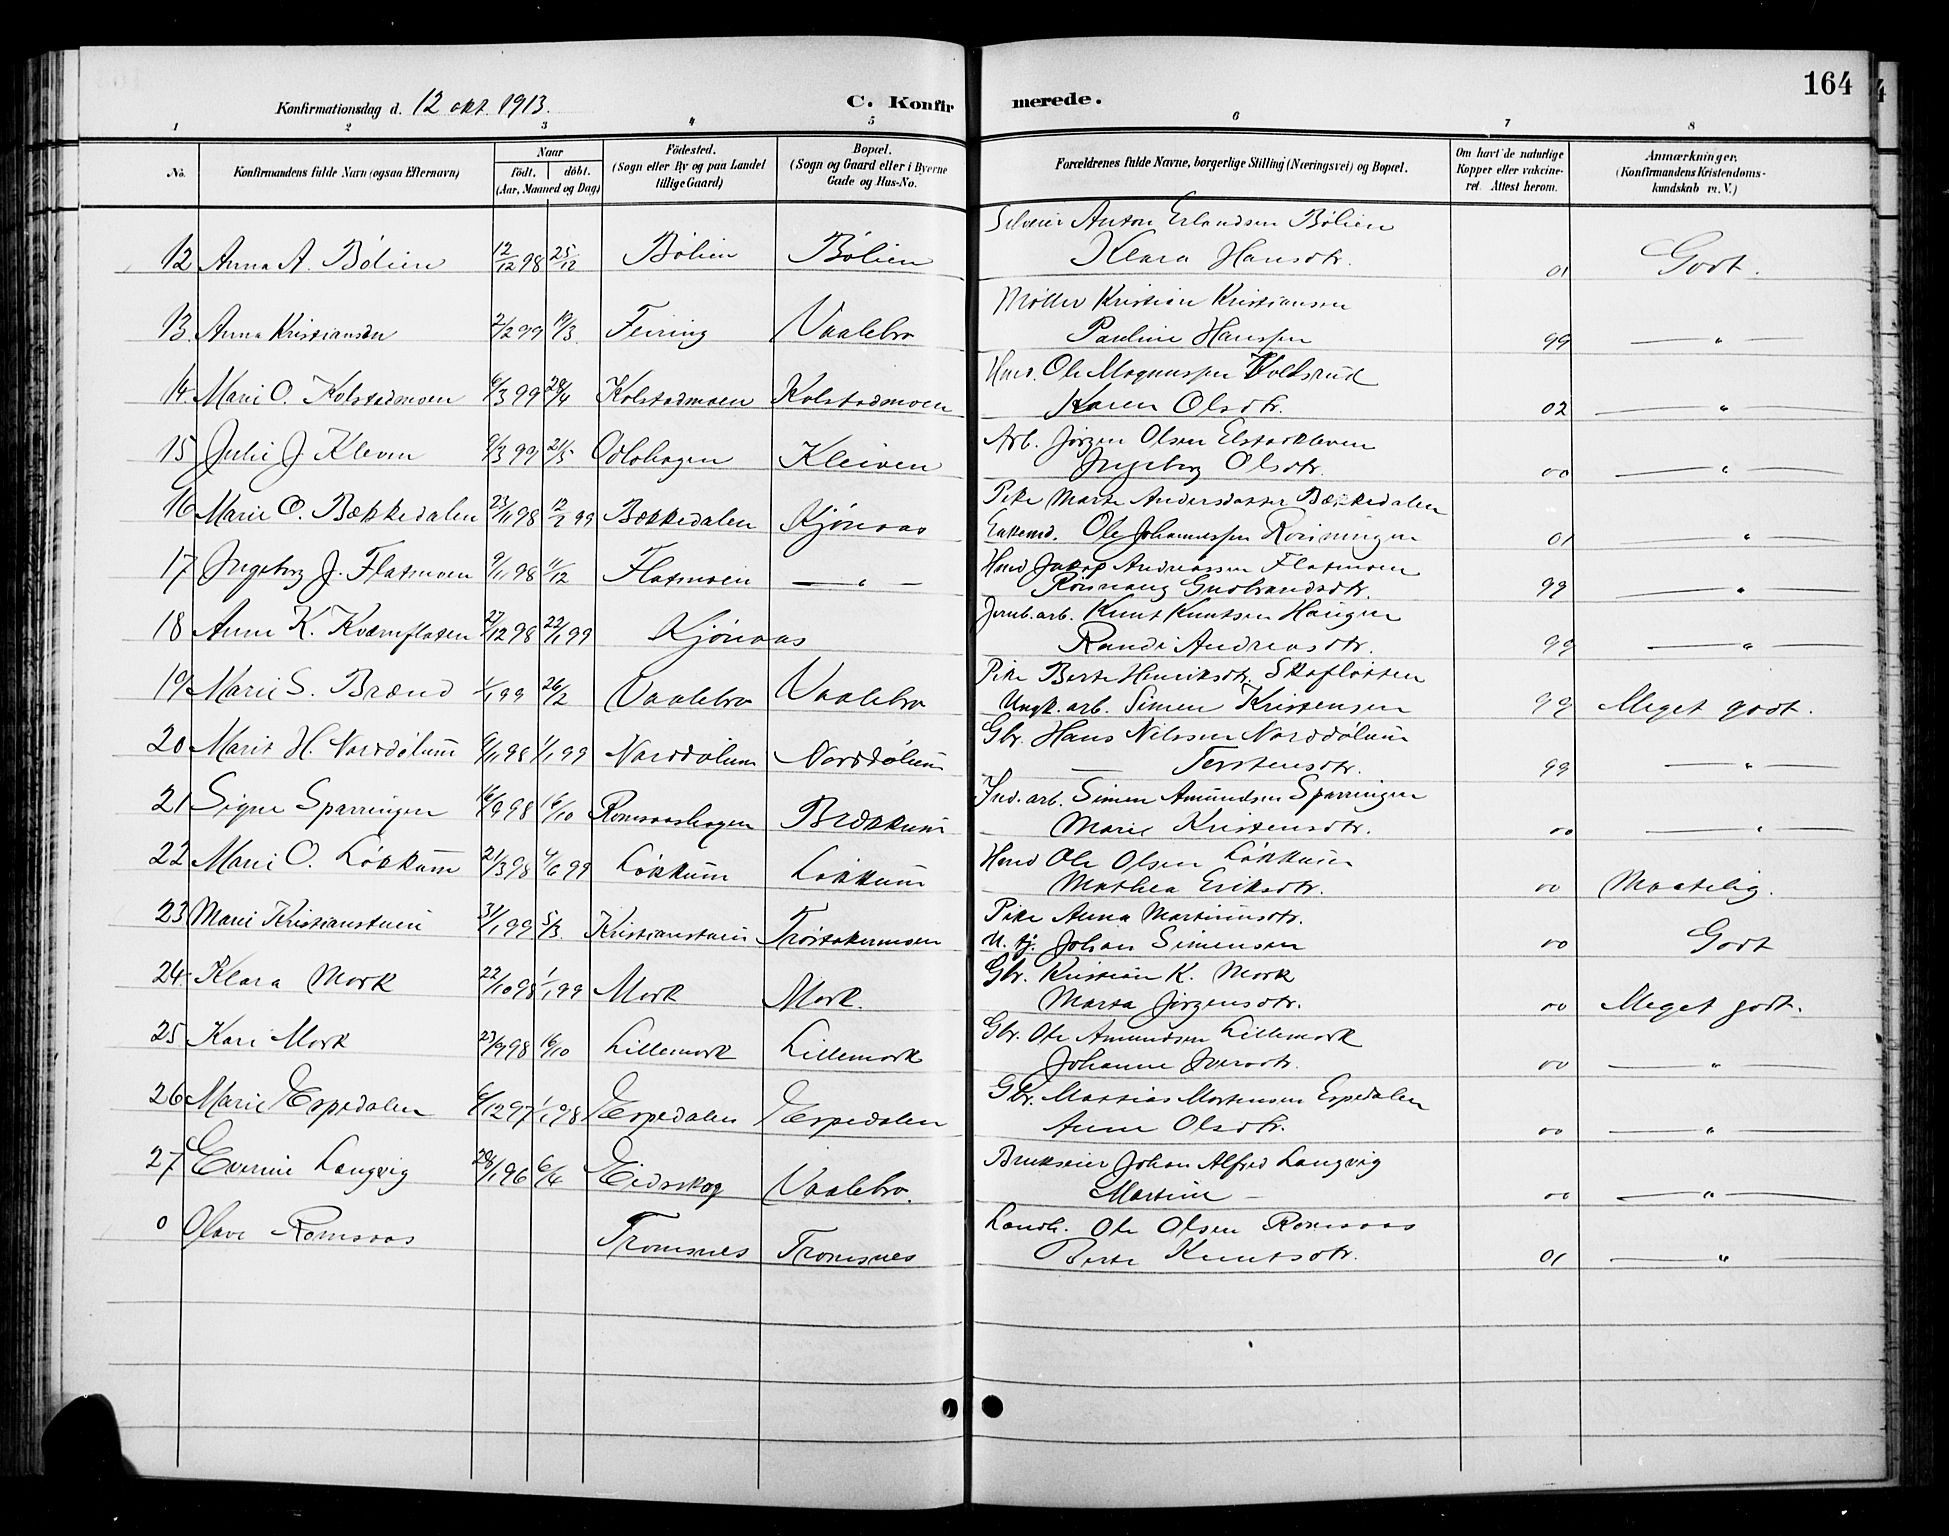 164
Konfirmationsdag d. 12 okt. 1913.
C. Konfirmerede.
1 2 3 4 5 6 7 8
No.
Konfirmandens fulde Navn (ogsaa Efternavn)
Naar
födt. döbt.
(Aar, Maaned og Dag)
Födested.
(Sogn eller By og paa Landet
tillige Gaard)
Bopæl.
(Sogn og Gaard eller i Byerne
Gade og Hus-No.
Forældrenes fulde Navne, borgerlige Stilling (Næringsvei) og Bopæl.
Om havt de naturlige
Kopper eller vakcine-
ret. Attest herom.
Anmærkninger.
(Konfirmandens Kristendoms-
kundskab m. V.)
Selveier Anton Erlandsen Bölien
12 Anna A. Bölien 12/12 98 25/12 Bölien Bölien Klara Hansdtr. 01 Godt.
Möller Kristian Kristiansen
13. Anna Kristiansen 2/2 99 19/3. Feiring Vaalebro Pauline Hanssen 99 — " —
Husd. Ole Magnussen Holtsrud
14. Marie O. Kolstadmoen 6/3 99 28/4 Kolstadmoen Kolstadmoen Karen Olsdtr. 02 — " —
Arb. Jörgen Olsen Elstadkleven
15 Julie J. Kleven 9/3 99 21/5 Odlohagen Kleiven Ingeborg Olsdtr. 00 — " —
Pike Marte Andersdatter Bækkedalen
16 Marie O. Bækkedalen 23/11 98 12/2 99 Bækkedalen Kjönaas Enkemd. Ole Johannessen Rönningen 01 "
Husd Jakop Andreassen Flatmoen
17 Ingeborg J. Flatmoen 9/11 98 11/12 Flatmoen — " — Rönnaug Gudbrandsdtr. 99 — " —
Jernb.arb. Knut Knutsen Haugen
18 Anne K. Kværnflaten 27/12 98 22/1 99 Kjönaas Randi Andreasdtr. 99 — " —
Pike Berte Henriksdtr. Skaflötten
19 Marie S. Brænd 1/1 99 26/2 Vaalebro Vaalebro Ungk. arb. Simen Kristensen 99 Meget godt.
Gbr. Hans Nilssen Norddölum
20 Marit H. Norddölum 9/11 98 1/1 99 Norddölum Norddölum — Torstensdtr. 99 — " —
Ind. arb. Simen Amundsen Sparringen
21 Signe Sparringen 16/9 98 16/10 Romsaashagen Brækkum Marie Kristensdtr. 00 — " —
Husd Ole Olsen Lökkum
22 Marie O. Lökkum 21/3 98 4/6 99 Lökkum Lökkum Mathea Eriksdtr. 00 Maatelig.
Pike Anna Martinusdtr.
23 Marie Kristianstuen 31/1 99 5/3. Kristianstuen Tröstakermoen U. tj. Johan Simensen 00 Godt
Gbr. Kristian K. Mork
24. Klara Mork 22/10 98 1/1 99 Mork Mork. Marta Jörgensdtr. 00 Meget godt.
Gbr. Ole Amundsen Lillemork
25 Kari Mork 23/9 98 16/10 Lillemork Lillemork Johanne Iversdtr. 00 — " —
Gbr. Mattias Mortensen Espedalen
26 Marie Espedalen 6/12 97 1/1 98 Espedalen Espedalen Anne Olsdtr. 00 — " —
Brukseier Johan Alfred Langvig
27 Evenine Langvig 28/1 96 6/4 Eidsskog Vaalebro. Martine — 00 — " —
Landh. Ole Olsen Romsaas
0 Olave Romsaas Tromsnes Tromsnes Berte Knutsdtr. 01 — " —